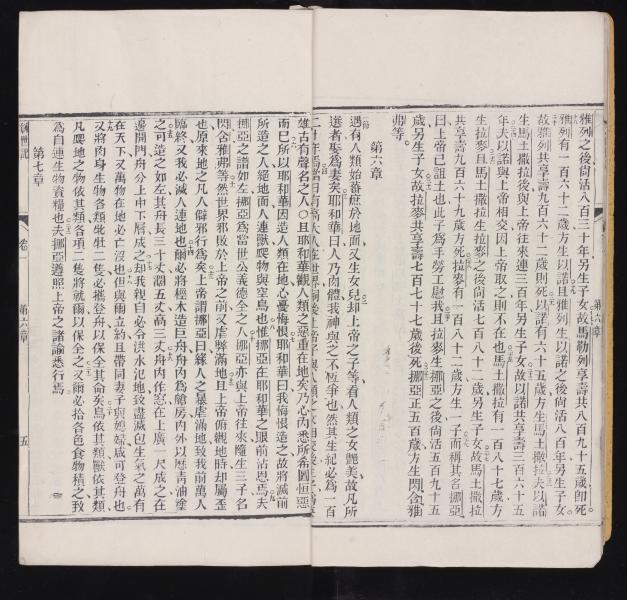 雅列之後尚活八百三十年另生子女故馬勒列享壽共八百九十五歲卽死
雅列有一百六十二歲方生以諾且雅列生以諾之後尚活八百年另生子女
故雅列共享壽九百六十二歲則死以諾有六十五歲方生馬土撒拉夫以諾
生馬土撒拉後與上帝往來連三百年另生子女故以諾共享壽三百六十五
年夫以諾與上帝相交因上帝取之則不在也馬土撒拉有一百八十七歲方
生拉麥且馬土撒拉生拉麥之後尚活七百八十二歲另生子女故馬土撒拉
共享壽九百六十九歲方死拉麥有一百八十二歲方生一子而稱其名挪亞
曰上帝已詛土也此子爲手勞工慰我且拉麥生挪亞之後尚活五百九十五
歲另生子女故拉麥共享壽七百七十七歲後死挪亞正五百歲方生閃含雅
弗等
第六章
遇有人類始蕃庶於地面又生女兒却上帝之子等看人類之女艷美故凡所
選者娶爲妻矣耶和華曰人乃肉體我神與之不恆爭也然其生紀必爲一百
二十年焉當日有高大人在世界
雄古有聲名之人〇且耶和華觀人類之惡重在地矣乃心內悉所希圖恒惡
而巳所以耶和華因造人類在地心憂悔恨耶和華曰我悔恨造之故將滅前
所造之人絕地面人連獸爬物與空鳥也惟挪亞在耶和華之眼前沾恩焉夫
挪亞之譜如左挪亞爲當世公義德全之人挪亞亦與上帝往來隨生三子名
閃含雅弗等然世界邪敗於上帝之前又虐弊滿地且上帝俯觀地時却屬歪
也原來地之凡人僻邪行爲矣上帝謂挪亞曰緣人之暴虐滿地致我前萬人
臨終又我必滅人連地也爾必將桱木造巨舟舟內爲艙房內外以瀝靑油塗
之可造之如左其舟長三十丈濶五丈高三丈舟內作窓在上廣一尺成之在
邊開門舟分上中下層成之却我親自必令洪水氾地致盡滅包生氣之萬有
在天下又萬物在地必亡沒也但與爾立約且帶同妻子與媳婦咸可登舟也
又將肉身生物各類牝牡二隻必攜登舟以保全其命矣鳥依其類獸依其類
凡爬地之物依其類各項二隻將就爾以保全之又爾必拾各色食物積之致
爲自連生物資糧也夫挪亞遵照上帝之諸諭悉行焉
第七章
第六章
卷一
第六章
五